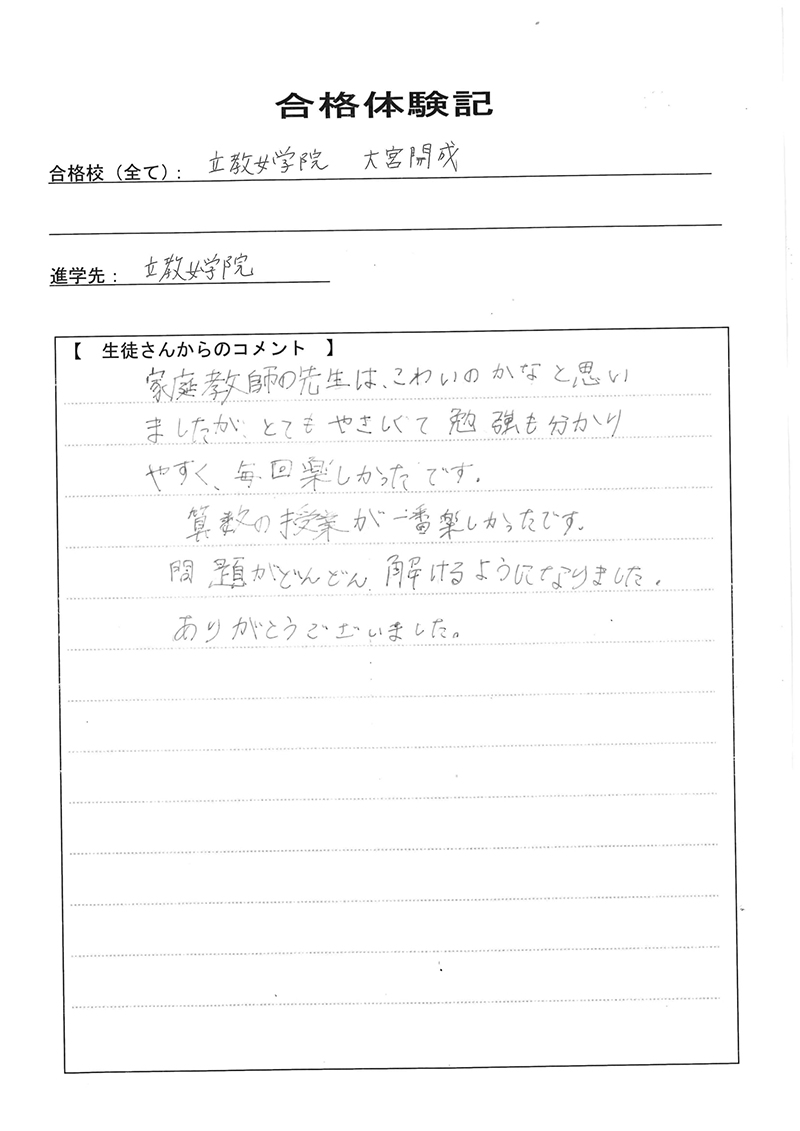 合格体験記
合格校（全て）： 立教女学院 大宮開成
進学先： 立教女学院
【 生徒さんからのコメント 】
家庭教師の先生は、こわいのかなと思い
ましたが、とてもやさしくて勉強も分かり
やすく、毎回楽しかったです。
算数の授業が一番楽しかったです。
問題がどんどん解けるようになりました。
ありがとうございました。